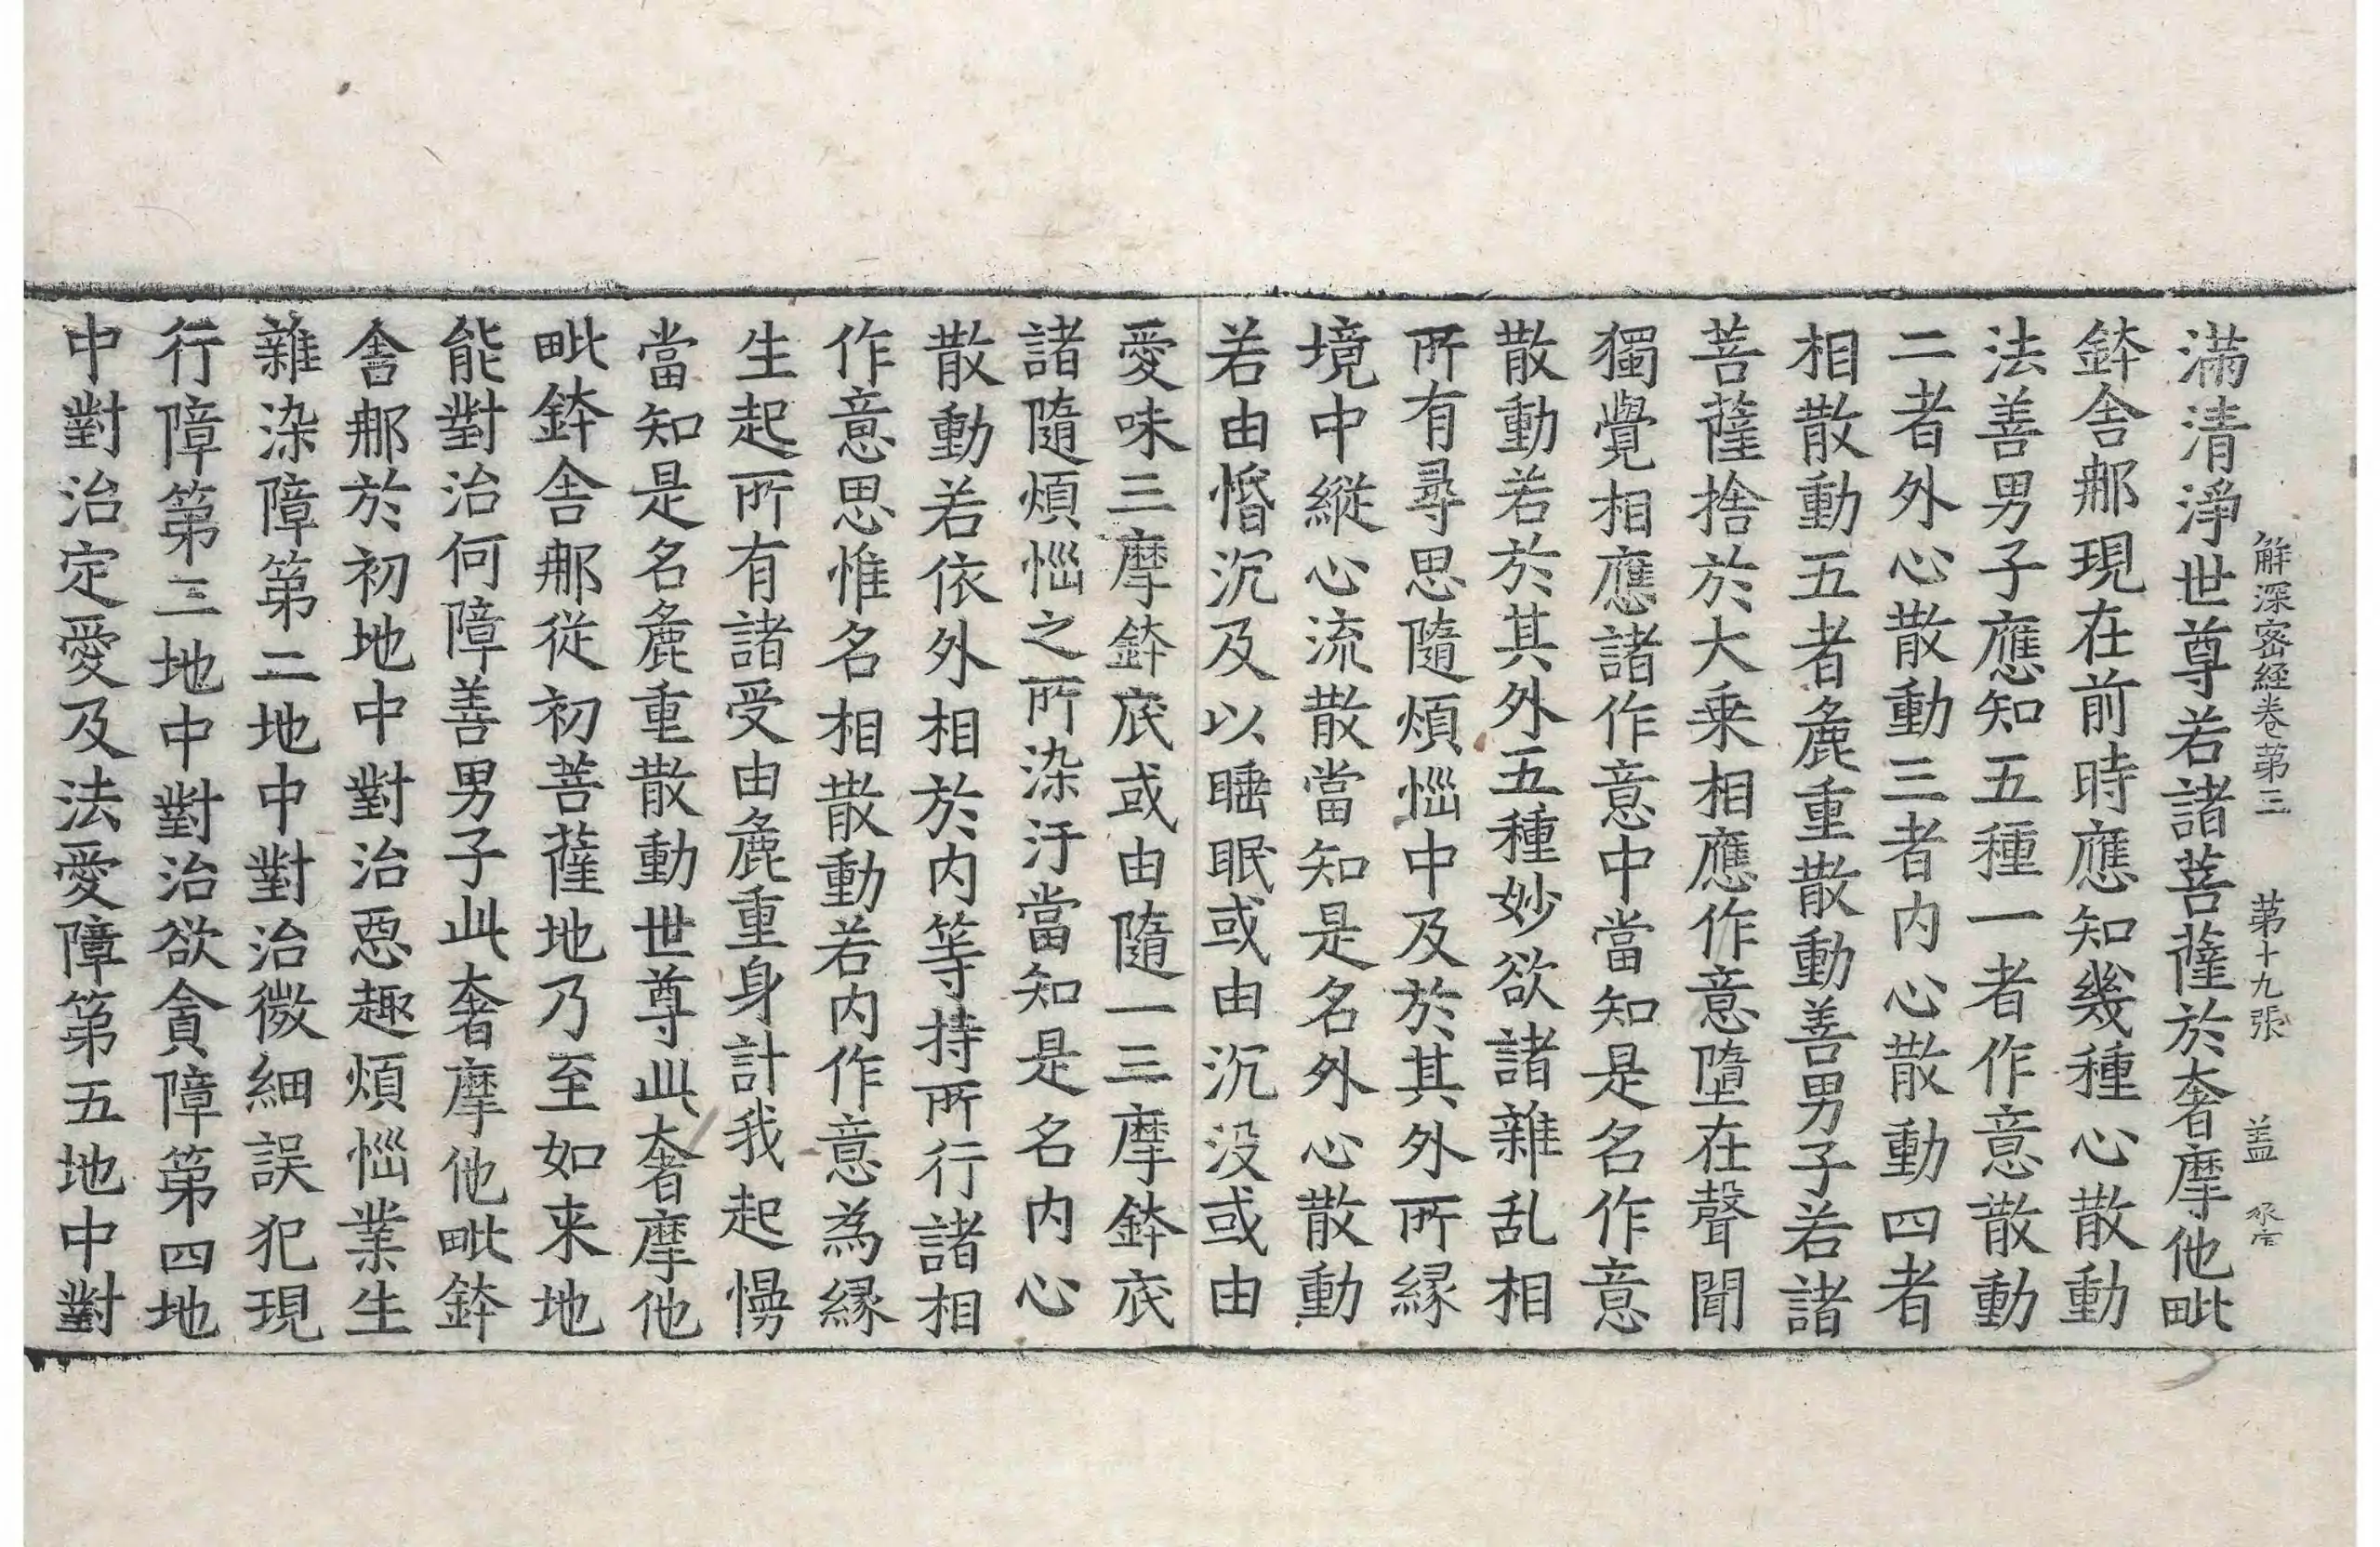 解深密経卷第三　第十九張　盖
滿清淨世尊若諸菩薩於奢摩他毗
鉢舍那現在前時應知幾種心散動
法善男子應知五種一者作意散動
二者外心散動三者内心散動四者
相散動五者麁重散動善男子若諸
菩薩捨於大乗相應作意墮在聲聞
獨覺相應諸作意中當知是名作意
散動若於其外五種妙欲諸雜乱相
所有尋思隨煩惱中及於其外所縁
境中縱心流散當知是名外心散動
若由惛沉及以睡眠或由沉没或由
愛味三摩鉢底或由隨一三摩鉢底
諸隨煩惱之所染汙當知是名内心
散動若依外相於内等持所行諸相
作意思惟名相散動若内作意為縁
生起所有諸受由麁重身計我起慢
當知是名麁重散動世尊此奢摩他
毗鉢舍那從初菩薩地乃至如来地
能對治何障善男子此奢摩他毗鉢
舍那於初地中對治惡趣煩惱業生
雜染障第二地中對治微細誤犯現
行障第三地中對治欲貪障第四地
中對治定愛及法愛障第五地中對